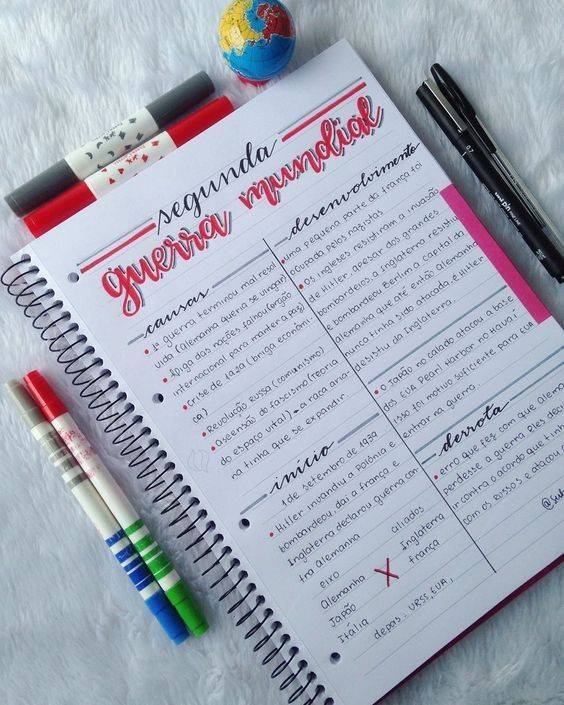 segunda
guerra mundial
causas
• 1ª guerra terminou mal resol
vida (alemanha queria se vingar)
• liga das nações falhou (órgão
internacional para manter a paz)
• Crise de 1929 (briga econômi
ca)
• Revolução russa (comunismo)
• Ascensão do fascismo (teoria
do espaço vital) - a raça aria-
na tinha que se expandir.
início
1 de setembro de 1939
• Hitler invandiu a Polônia e
bombardeou, daí a frança e
Inglaterra declarou guerra con-
tra Alemanha
eixo
Alemanha
Japão
Itália
X
aliados
Inglaterra
frança
depois: URSS, EUA,
desenvolvimento
• uma pequena parte da frança foi
ocupada pelos nazistas
• Os ingleses resistiram a invasão
de Hitler, apesar dos grandes
bombardeios a Inglaterra resistiu
e bombardeou Berlim a Capital da
Alemanha que até então Alemanha
nunca tinha sido atacada, e Hitler
desistiu da Inglaterra.
• O Japão no calado atacou a base
dos EUA Pearl Harbor no Havaí
isso foi motivo suficiente para EUA
entrar na guerra.
derrota
• erro que fez com que Alema
perdesse a guerra. Eles deci
incontra o acordo que tinh
com os Russos e atacou a